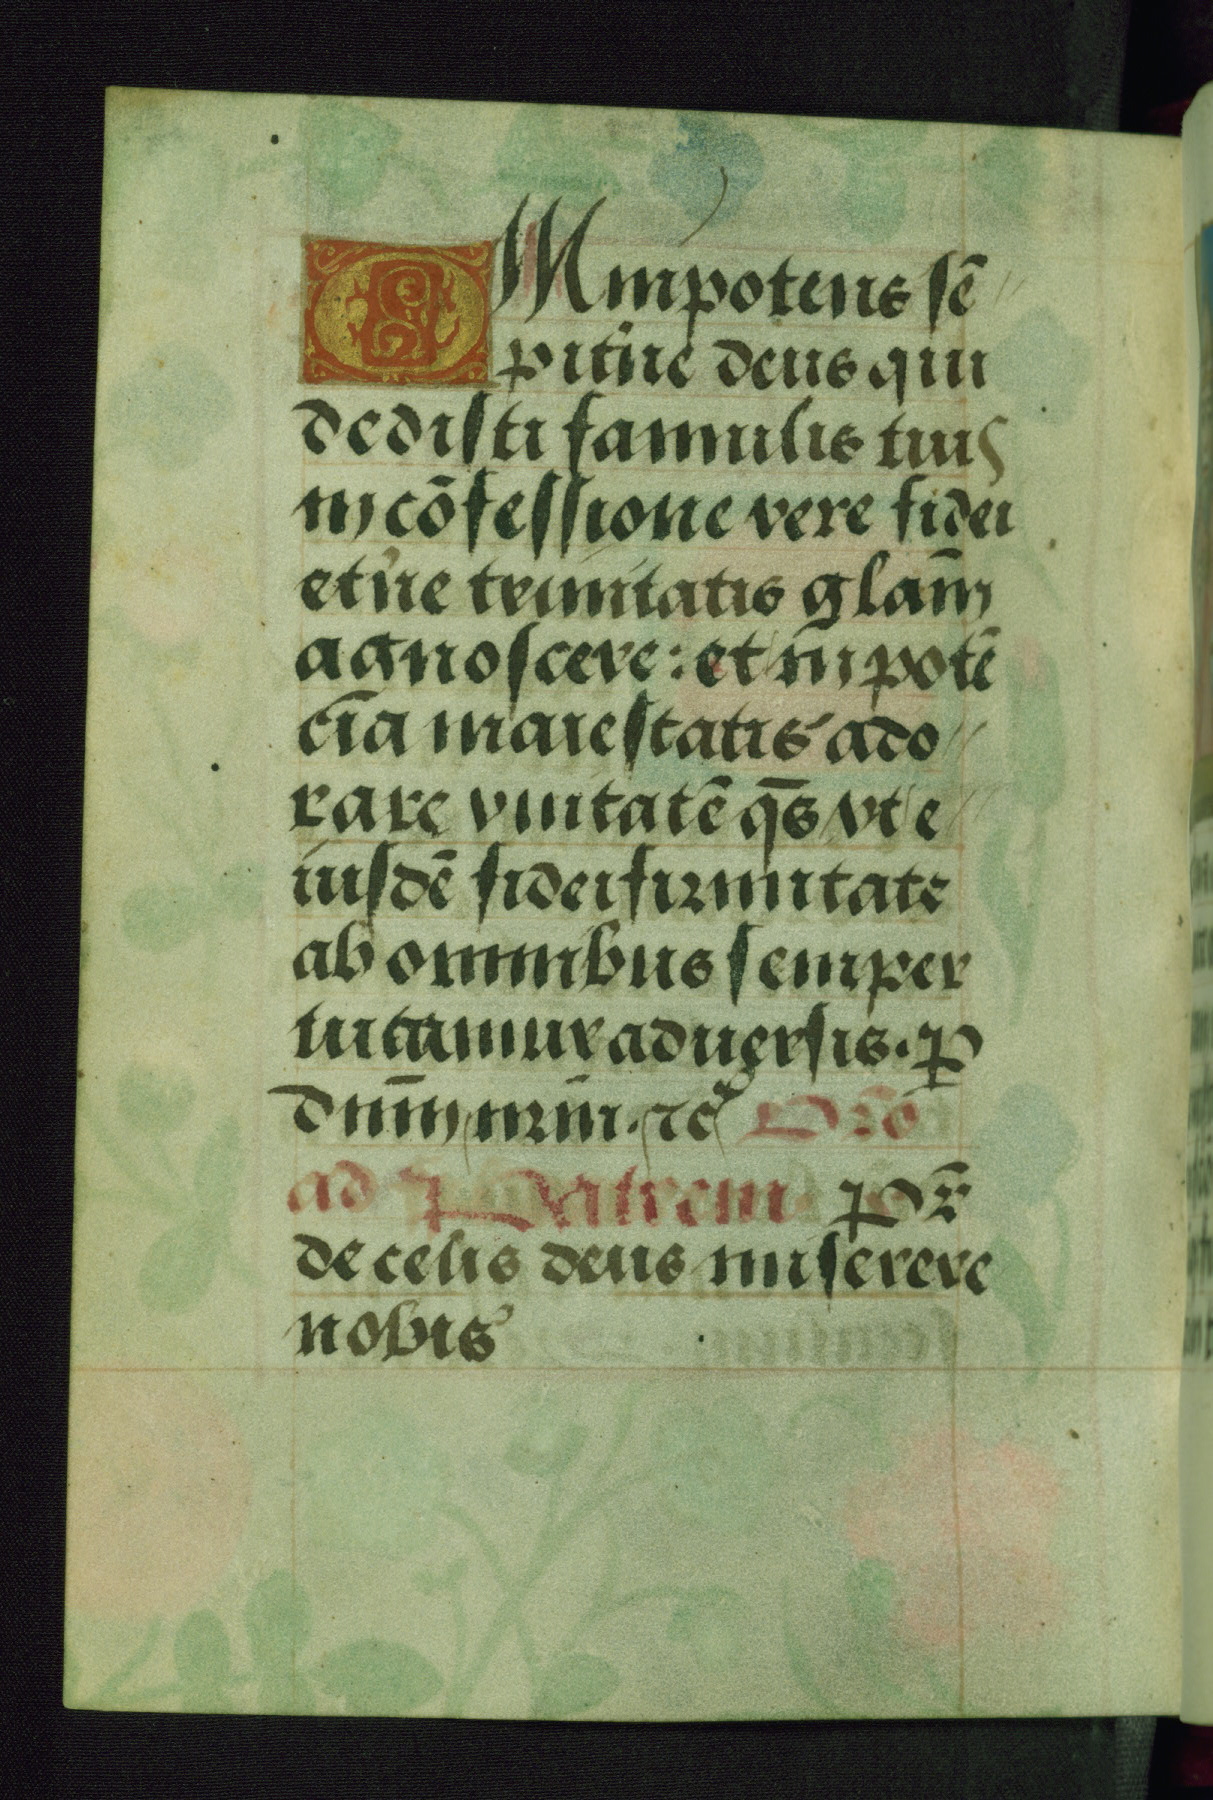 OMnipotens sē
pit̾ne deus qui
dedisti famulis tuis
in cōfessione vere fidei
et̾ne trinitatis glām
agnoscere: et in potē
cīa maiestatis ado
rare vnitatē qs̄ vt e
iusdē fidei firmitate
ab omnibus semper
tueamur aduersis. P
dnm̄ nrm̄. ⁊c̾ Orō
ad Patrem. Pr̄
de celis deus miserere
nobis